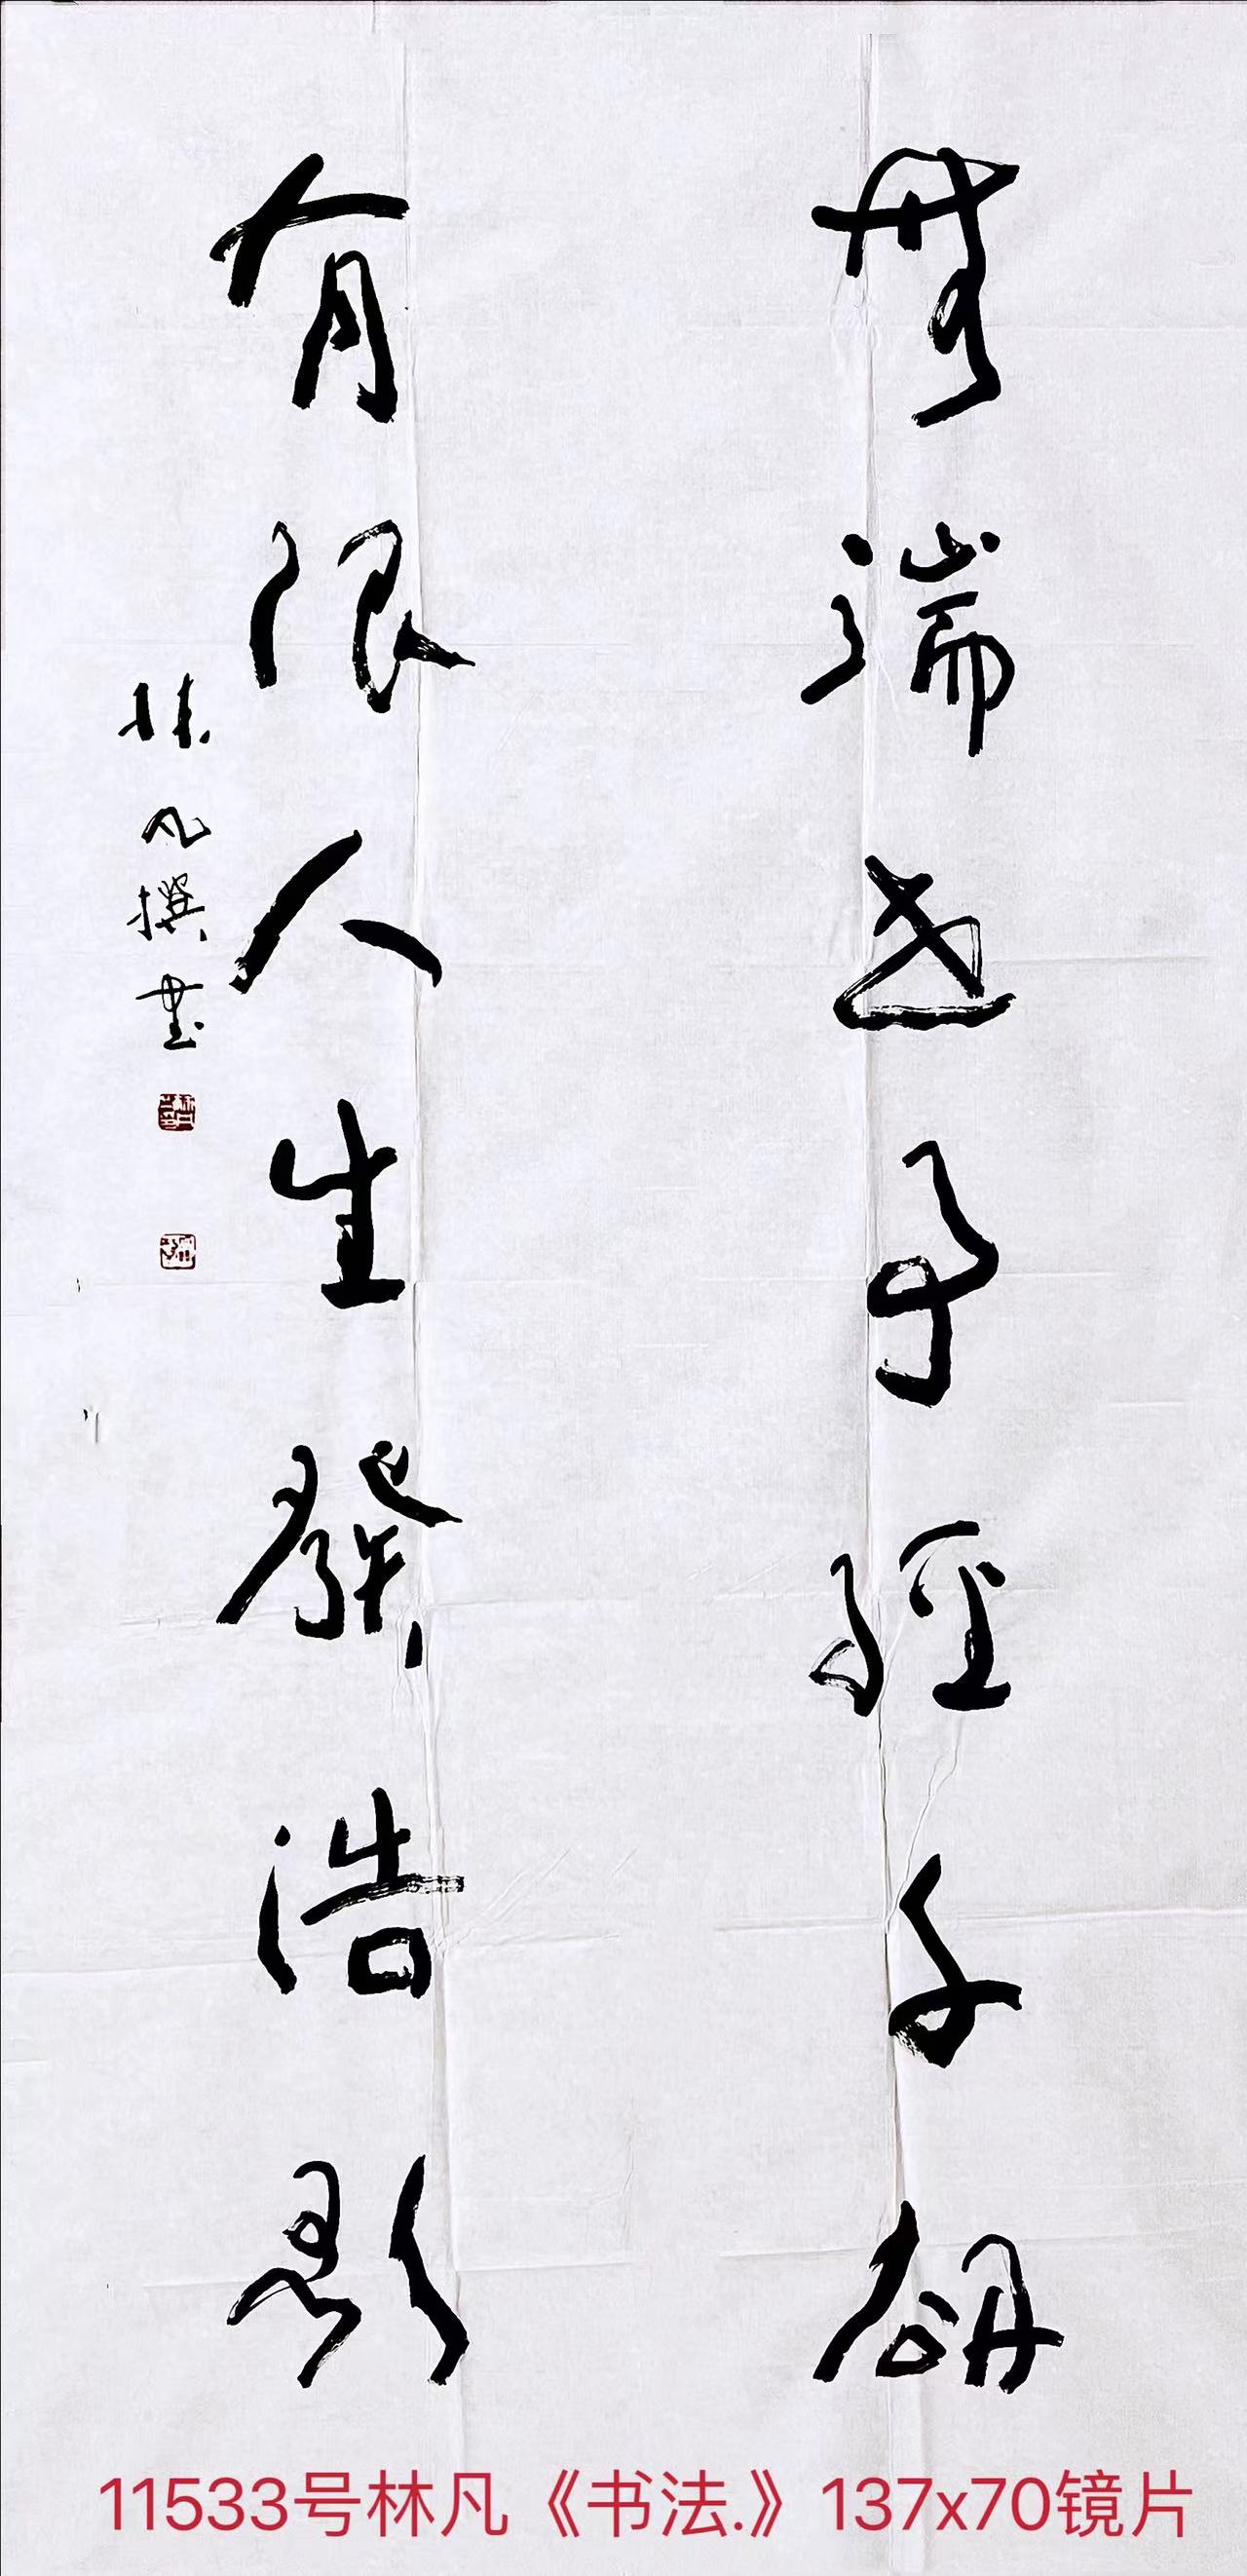 無端世事經千劫
有限人生發浩歌
林凡撰書
11533号林凡《书法.》137x70镜片